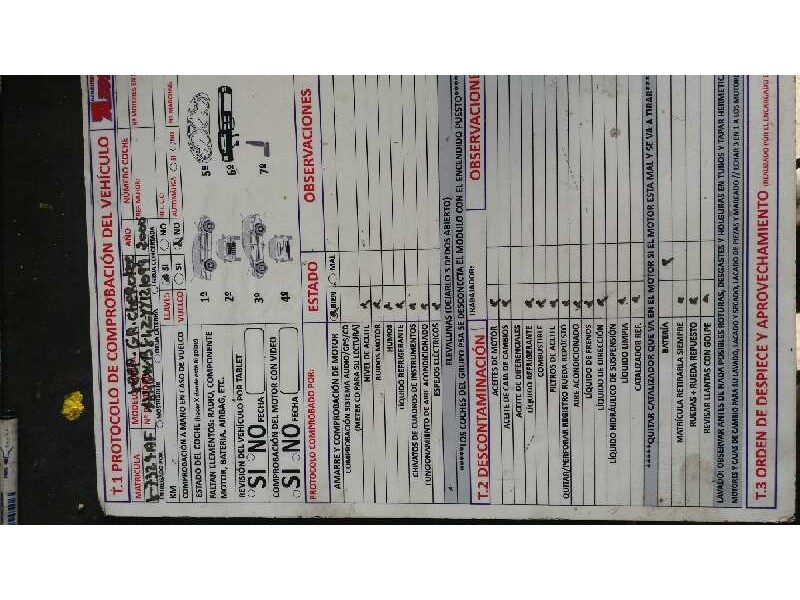 T.1 PROTOCOLO DE COMPROBACIÓN DEL VEHÍCULO
MATRÍCULA
AÑO
NÚMERO COCHE
Nº MOTORES EN
ENTREGADO POR
JEEP GR. CHEROKEE
2000
REF. MOTOR
KM
LLAVES SI NO
REF. C.C
Nº MARCHAS
COMPROBACIÓN A MANO EN CASO DE VUELCO
VUELCO SI NO
AUTOMÁTICA SI NO
ESTADO DEL COCHE
FALTAN ELEMENTOS: FARO, COMPONENTE
MOTOR, BATERIA, AIRBAG, ETC.
1º
5º
REVISIÓN DEL VEHÍCULO POR TABLET
2º
6º
SI NO FECHA
3º
7º
COMPROBACIÓN DEL MOTOR CON VIDEO
4º
SI NO FECHA
PROTOCOLO COMPROBADO POR:
ESTADO
OBSERVACIONES
AMARRE Y COMPROBACIÓN DE MOTOR
BIEN MAL
COMPROBACIÓN SISTEMA AUDIO/GPS/CD
(METER CD PARA SU LECTURA)
NIVEL DE ACEITE
RUIDOS MOTOR
HUMOS
LÍQUIDO REFRIGERANTE
CHIVATOS DE CUADROS DE INSTRUMENTOS
FUNCIONAMIENTO DE AIRE ACONDICIONADO
ESPEJOS ELÉCTRICOS
REVENTALUNAS (DEJARLO 3 DEDOS ABIERTO)
*****(LOS COCHES DEL GRUPO PSA SE DESCONECTA EL MODULO CON EL ENCENDIDO PUESTO)*****
T.2 DESCONTAMINACIÓN
TRABAJADOR:
OBSERVACIONE
ACEITES DE MOTOR
ACEITE DE CAJA DE CAMBIOS
ACEITE DE DIFERENCIALES
LÍQUIDO REFRIGERANTE
COMBUSTIBLE
FILTROS DE ACEITE
QUITAR/PERFORAR REGISTRO RUEDA REPUESTO
AIRE ACONDICIONADO
LÍQUIDO DE FRENOS
LÍQUIDO DE DIRECCIÓN
LÍQUIDO HIDRÁULICO DE SUSPENSIÓN
LÍQUIDO LIMPIA
CATALIZADOR REF.
*****QUITAR CATALIZADOR QUE VA EN EL MOTOR SI EL MOTOR ESTA MAL Y SE VA A TIRAR*****
BATERÍA
MATRÍCULA RETIRARLA SIEMPRE
RUEDAS + RUEDA REPUESTO
REVISAR LLANTAS CON GOLPE
LAVADO: OBSERVAR ANTES DE NADA POSIBLES ROTURAS, DESGASTES Y HOLGURAS EN TUBOS Y TAPAR HERMETIC
MOTORES Y CAJAS DE CAMBIO PARA SU LAVADO, LACADO Y SECADO, LACADO DE PIEZAS Y MARCADO // ECHAR 3 EN 1 A LOS MOTORE
T.3 ORDEN DE DESPIECE Y APROVECHAMIENTO (REALIZADO POR EL ENCARGADO